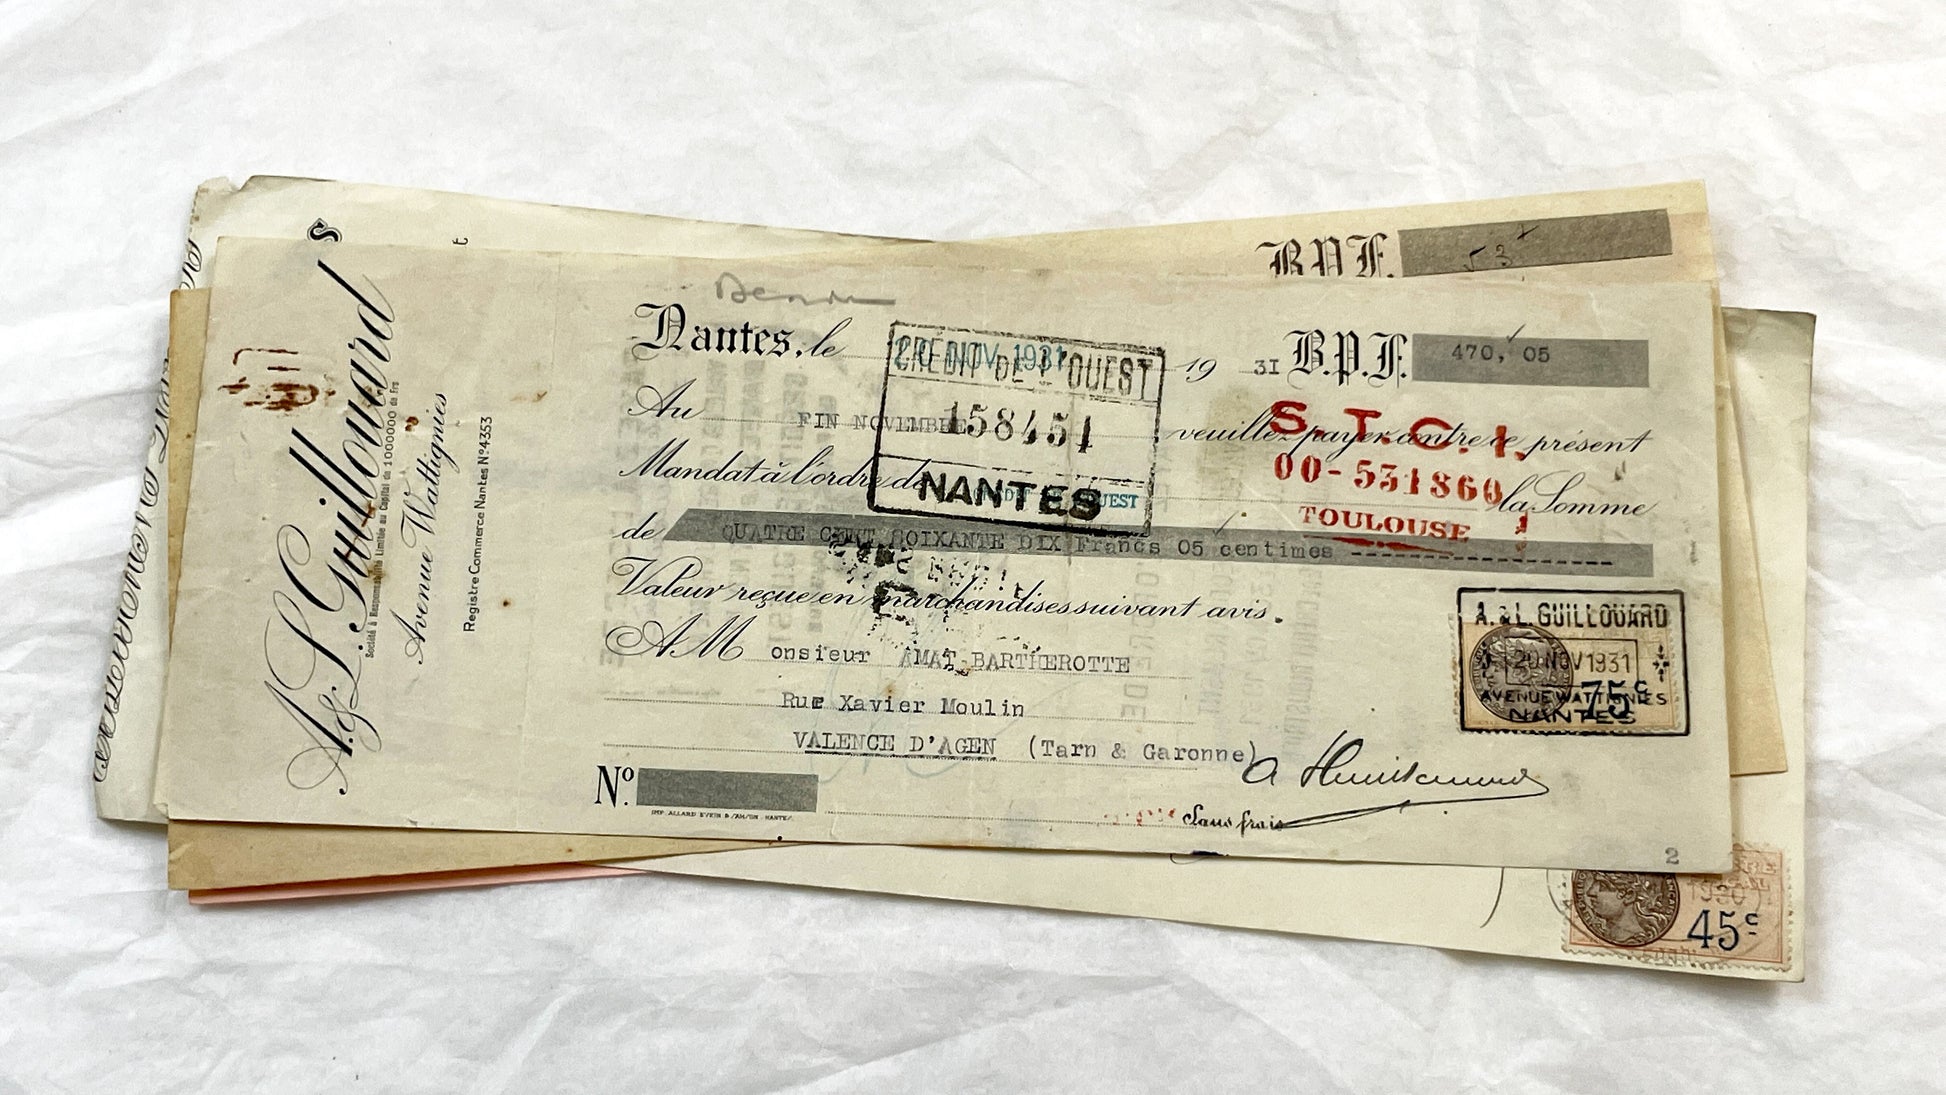 A. & L. Guillouard
Société à Responsabilité Limitée au Capital de 1000000 de Frs
Avenue Wattignies
Registre Commerce Nantes Nº 4353
B.P.F. 53
Nantes, le 20 NOV 1931 19 31 B.P.F. 470,05
CREDIT DE L'OUEST
158451
NANTES
Au FIN NOVEMBRE veuillez payer contre ce présent
S.T.C.I.
00-531860
TOULOUSE
Mandat à l'ordre de CREDIT DE L'OUEST la Somme
de QUATRE CENT SOIXANTE DIX Francs 05 centimes
Valeur reçue en marchandises suivant avis.
A M onsieur AMAT-BARTHEROTTE
Rue Xavier Moulin
VALENCE D'AGEN (Tarn & Garonne)
A. & L. GUILLOUARD
20 NOV 1931
AVENUE WATTIGNIES
NANTES
75c
Nº
Sans frais
2
45c